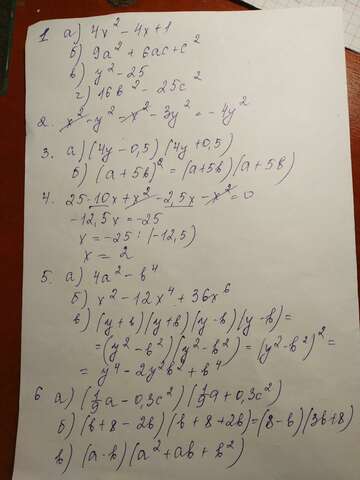 1. а) 4x² - 4x + 1
б) 9a² + 6ac + c²
в) y² - 25
г) 16b² - 25c²
2. x² - y² = x² - 3y² = -4y²
3. а) (4y - 0,5) (4y + 0,5)
б) (a + 5b)² = (a + 5b) (a + 5b)
4. 25 - 10x + x² - 2,5x - x² = 0
-12,5x = -25
x = -25 : (-12,5)
x = 2
5. а) 4a² - b⁴
б) x² - 12x⁴ + 36x⁶
в) (y + b) (y + b) (y - b) (y - b) =
= (y² - b²) (y² - b²) = (y² - b²)² =
= y⁴ - 2y²b² + b⁴
6 а) (1/9 a - 0,3c²) (1/9 a + 0,3c²)
б) (b + 8 - 2b) (b + 8 + 2b) = (8 - b) (3b + 8)
в) (a - b) (a² + ab + b²)